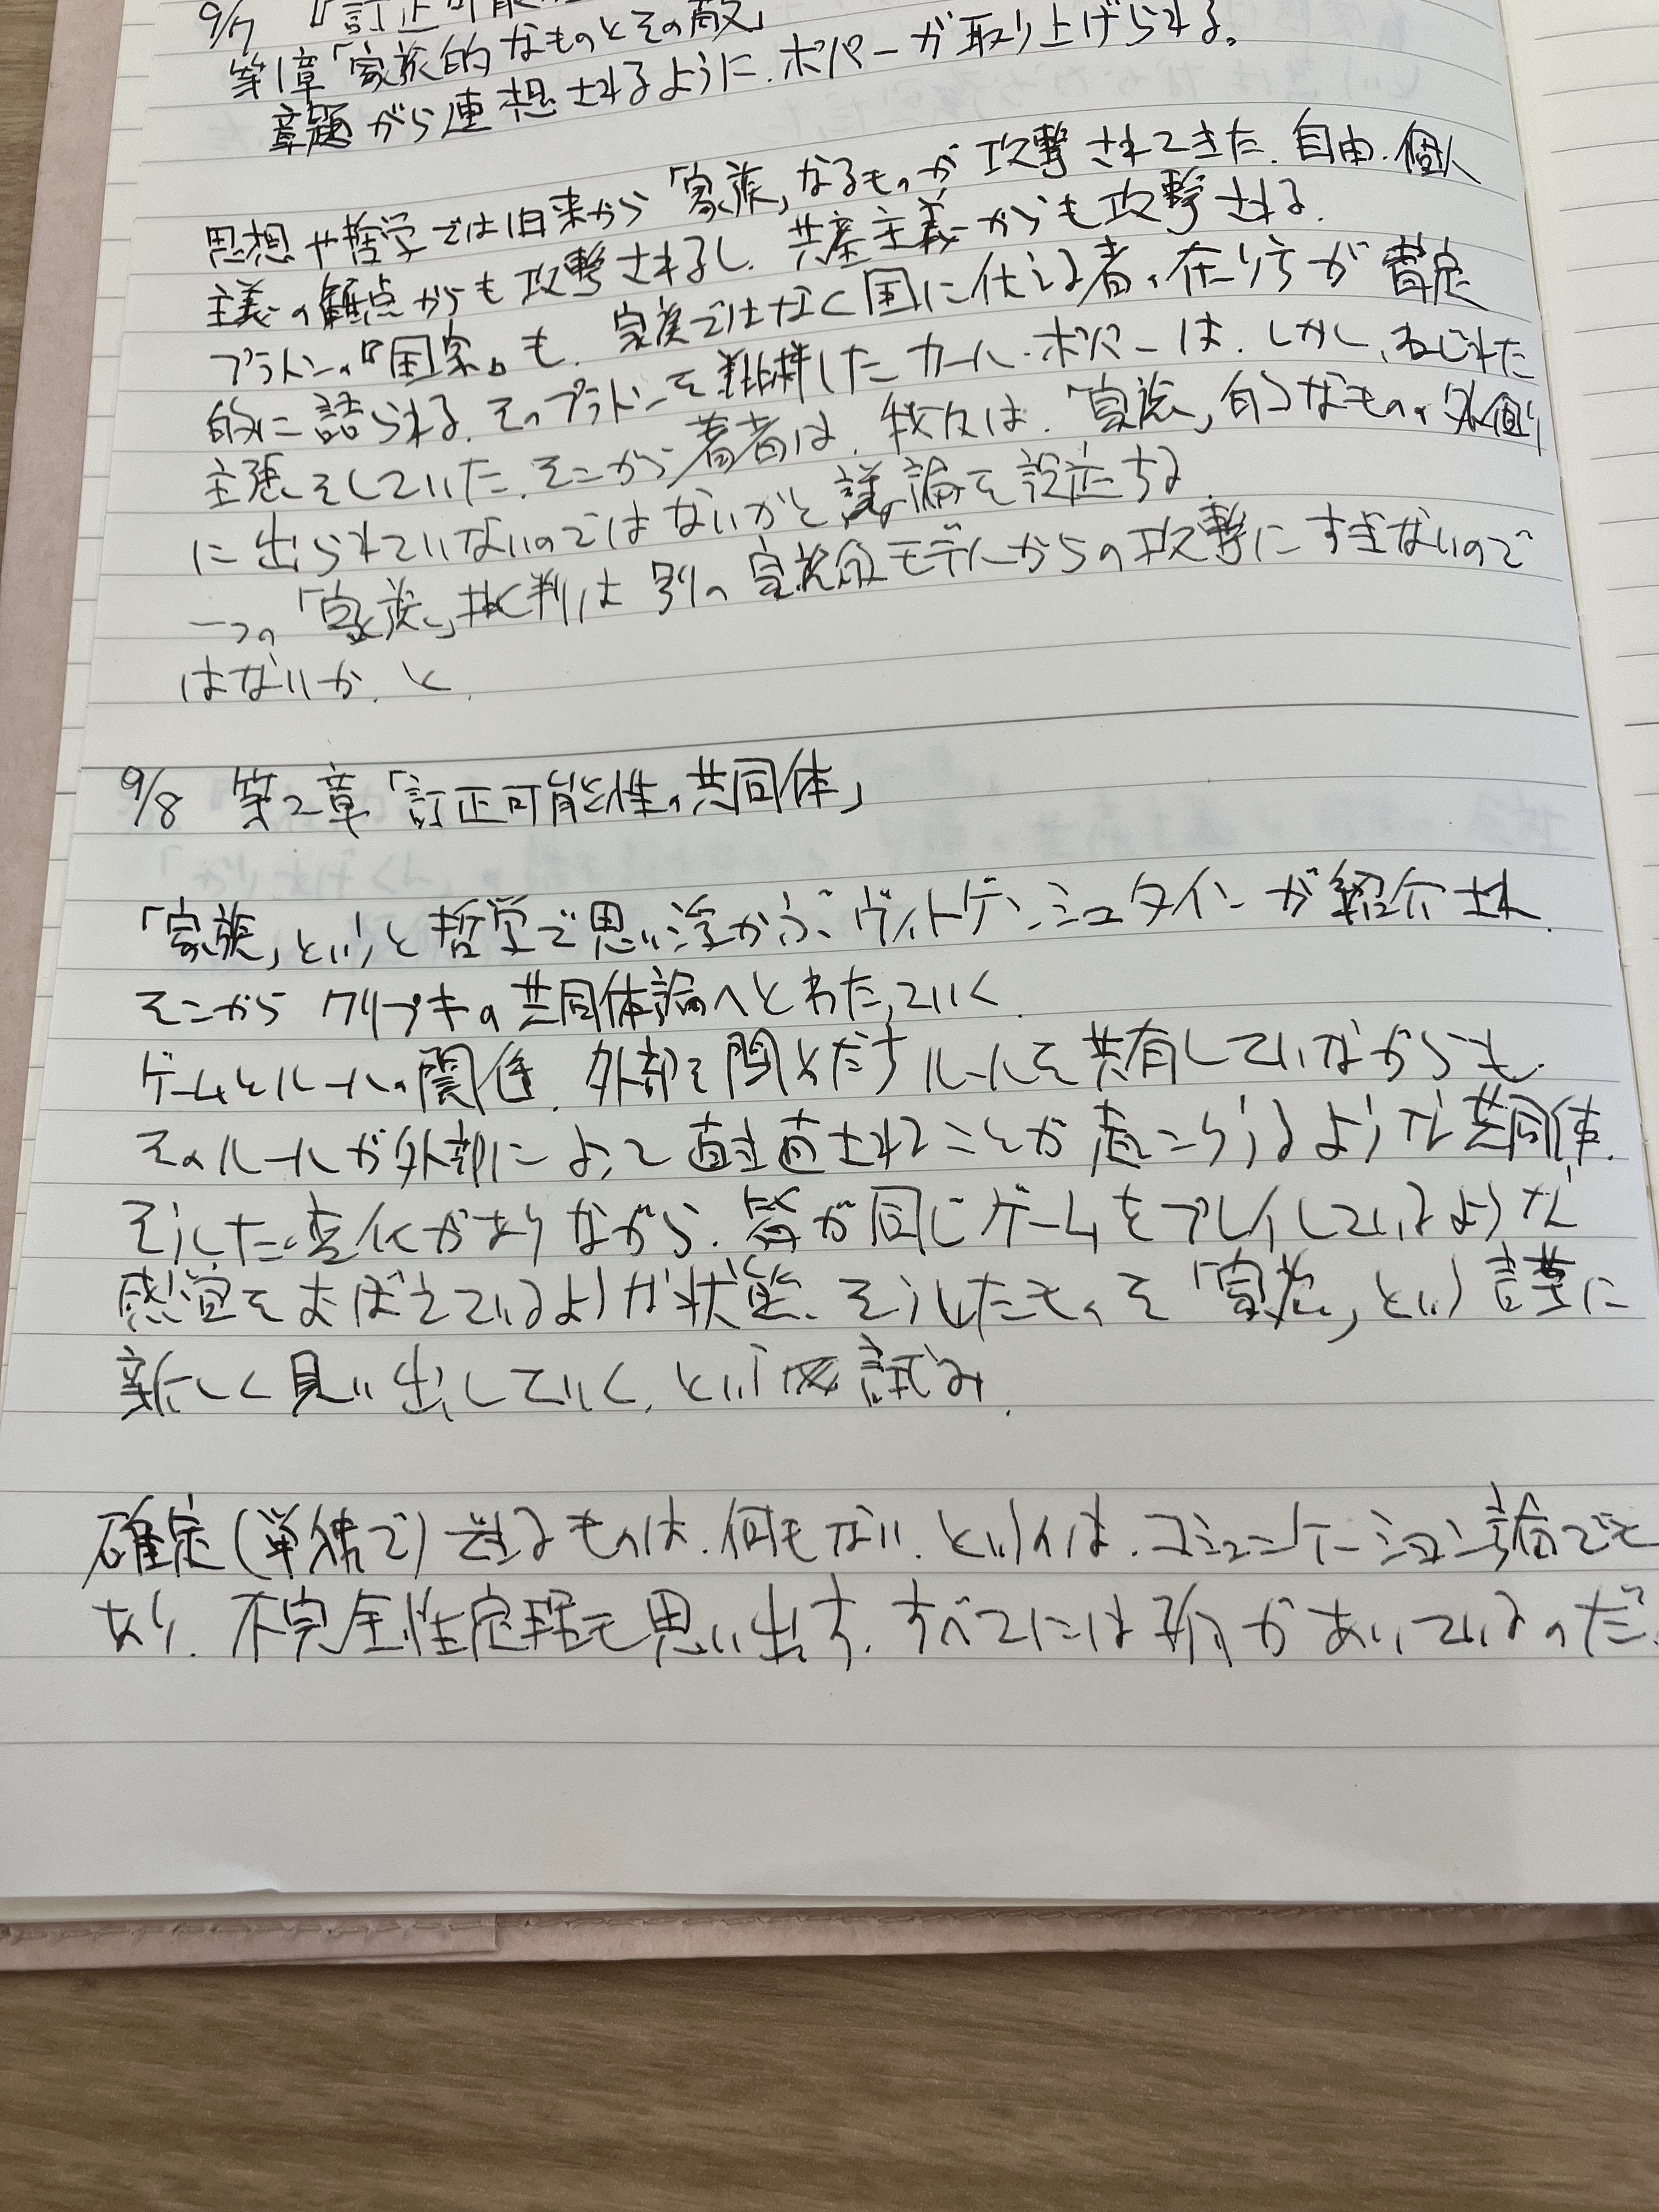 9/7 『訂正可能
第1章「家族的なものとその敵」
章題から連想されるように、ポパーが取り上げられる。
思想や哲学では旧来から「家族」なるものが攻撃されてきた。自由・個人
主義の観点からも攻撃されるし、共産主義からも攻撃される。
プラトンの『国家』も、家族ではなく国に仕える者の在り方が肯定
的に語られる。そのプラトンを批判したカール・ポパーは、しかし、ねじれた
主張をしていた。そこから著者は、我々は、「家族」的なものの外側
に出られていないのではないかと議論を設定する。
一つの「家族」批判は別の家族的モデルからの攻撃にすぎないので
はないか、と。
9/8 第2章「訂正可能性の共同体」
「家族」というと哲学で思い浮かぶ、ヴィトゲンシュタインが紹介され、
そこからクリプキの共同体論へとわたっていく。
ゲームとルールの関係。外部を閉めだすルールを共有していながらも、
そのルールが外部によって書き直されることが起こりうるような共同体。
そうした変化がありながら、皆が同じゲームをプレイしているような
感覚をおぼえているような状態、そうしたものを「家族」という言葉に
新しく見い出していく、という試み。
確定(単独で)できるものは、何もない、というのは、コミュニケーション論でも
あり、不完全性定理も思い出す。すべてには穴があいているのだ。